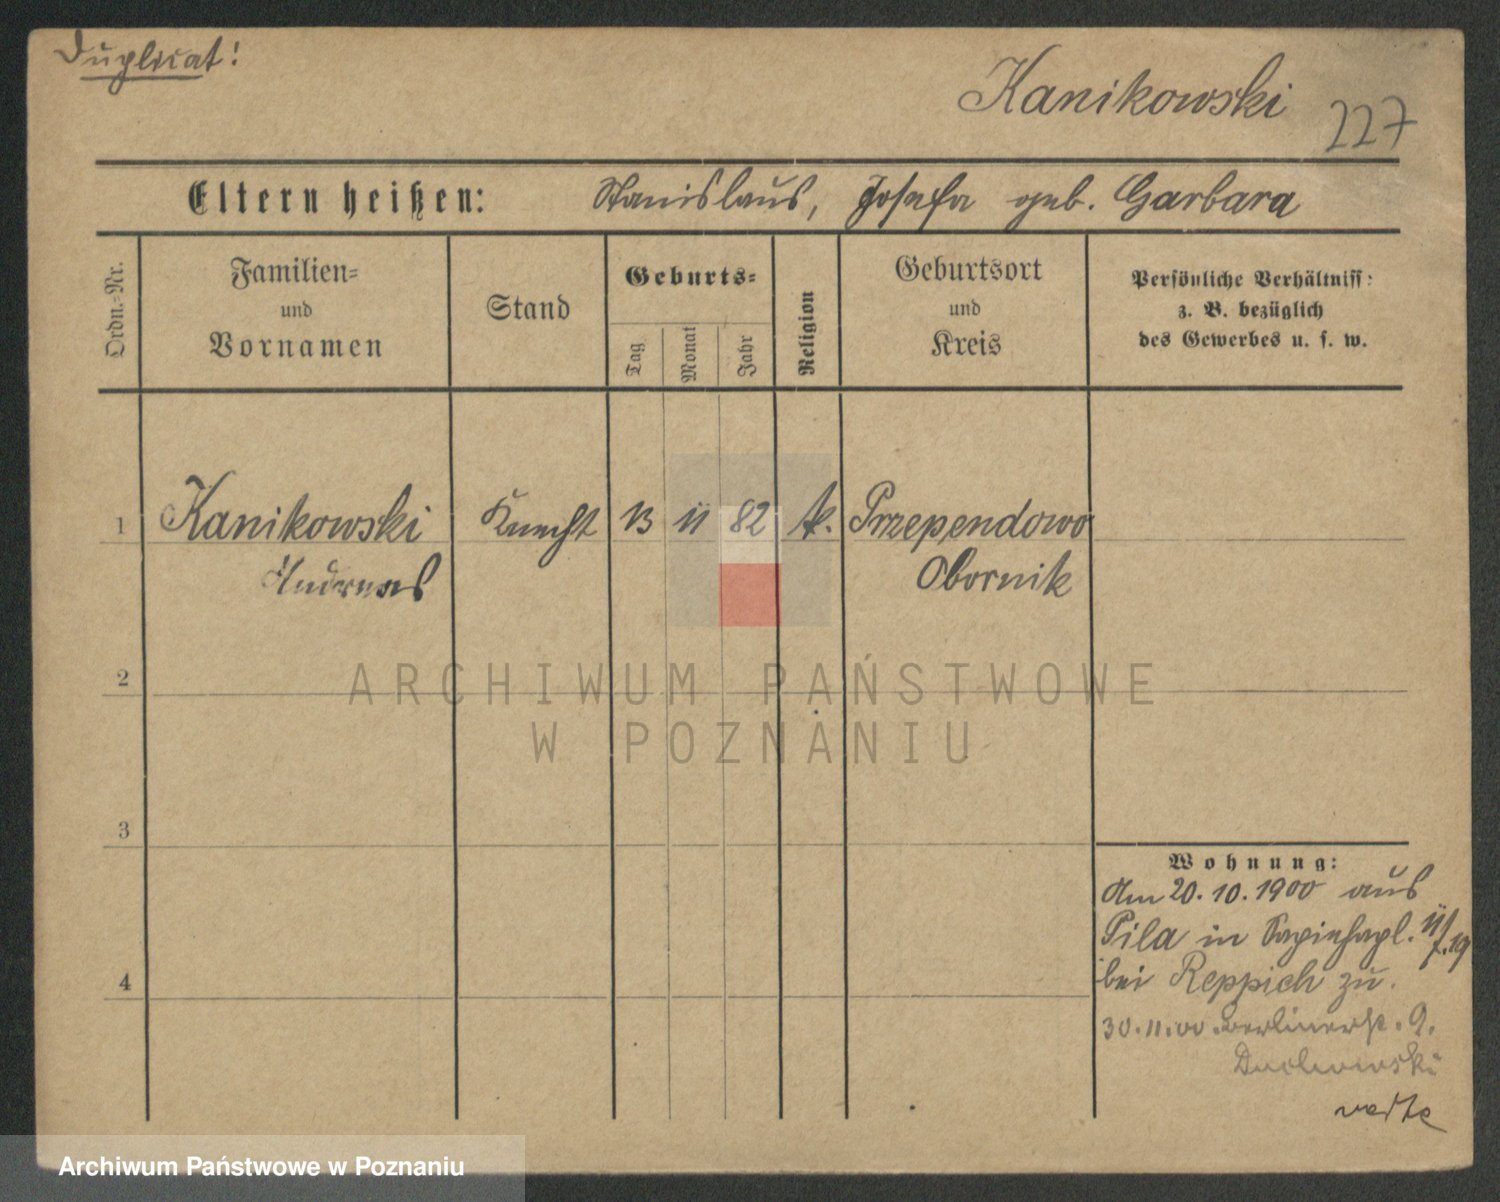 Duplicat!
Kanikowski
227
Eltern heißen: Stanislaus, Josefa geb. Garbara
Ordn.-Nr.
Familien-
und
Vornamen
Stand
Geburts-
Tag
Monat
Jahr
Religion
Geburtsort
und
Kreis
Persönliche Verhältniss:
z. B. bezüglich
des Gewerbes u. s. w.
1 Kanikowski Knecht 13 11 82 k. Przependowo
Andreas Obornik
2
ARCHIWUM PAŃSTWOWE
W POZNANIU
3
Wohnung:
Am 20.10.1900 aus
Pila in Sapiehapl.
bei Reppich zu.
4
30.11.00 Berlinerst. 9.
Duchowski
Archiwum Państwowe w Poznaniu